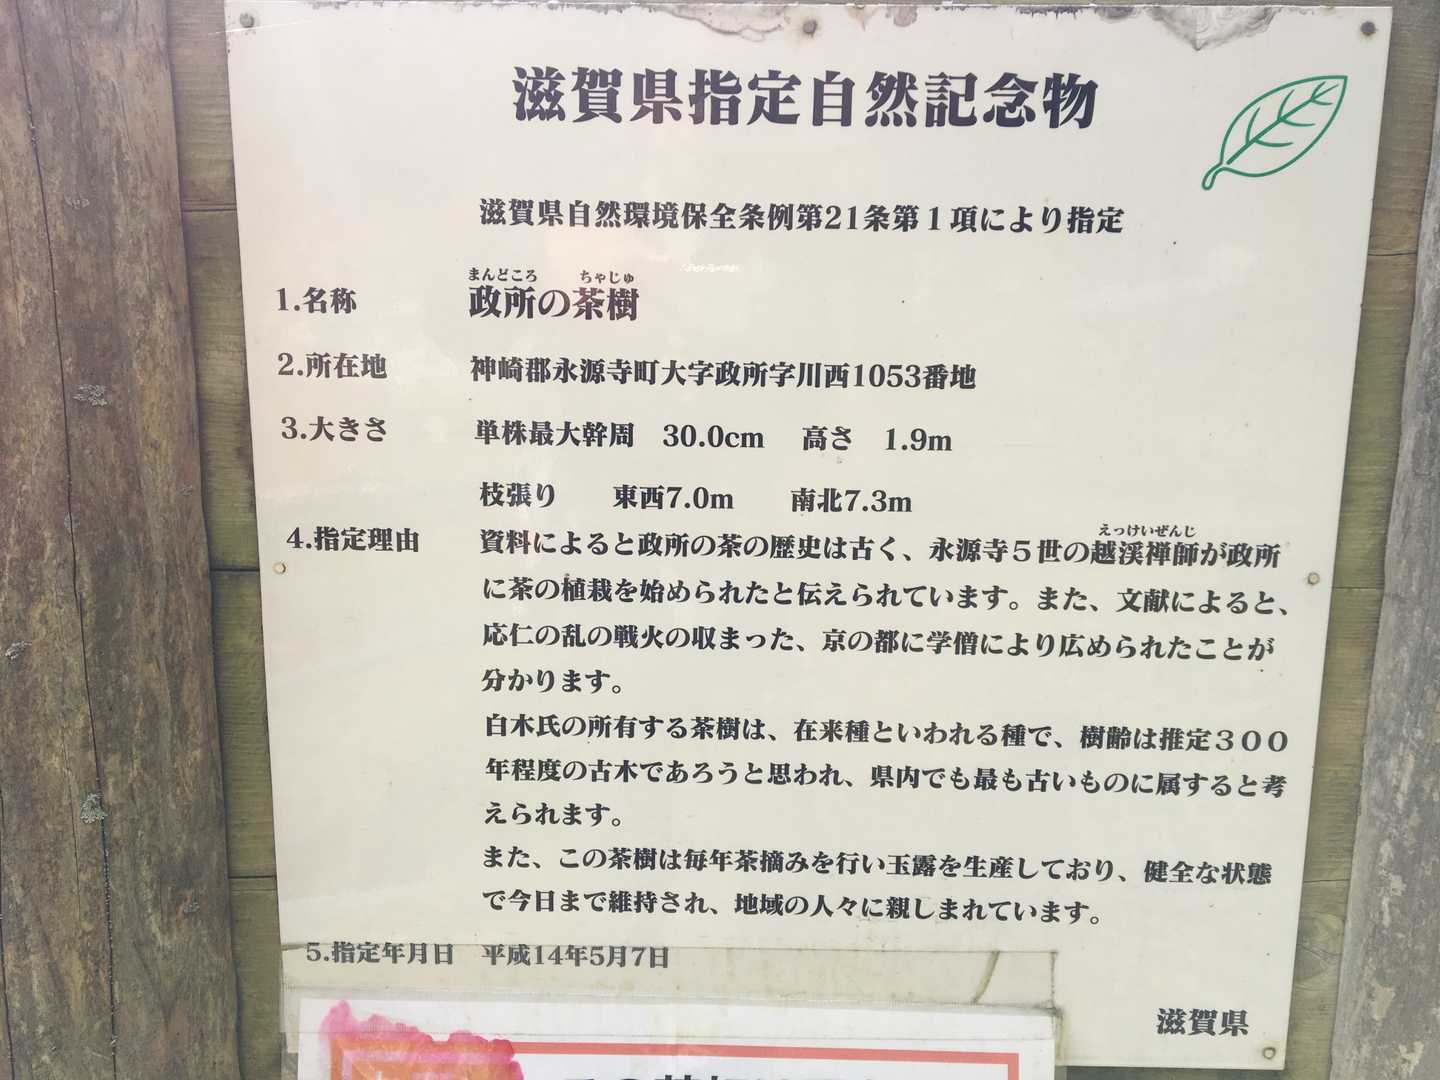 滋賀県指定自然記念物
滋賀県自然環境保全条例第21条第1項により指定
まんどころ ちゃじゅ
1.名称 政所の茶樹
2.所在地 神崎郡永源寺町大字政所字川西1053番地
3.大きさ 単株最大幹周 30.0cm 高さ 1.9m
枝張り 東西7.0m 南北7.3m
えっけいぜんじ
4.指定理由 資料によると政所の茶の歴史は古く、永源寺5世の越渓禅師が政所
に茶の植栽を始められたと伝えられています。また、文献によると、
応仁の乱の戦火の収まった、京の都に学僧により広められたことが
分かります。
白木氏の所有する茶樹は、在来種といわれる種で、樹齢は推定300
年程度の古木であろうと思われ、県内でも最も古いものに属すると考
えられます。
また、この茶樹は毎年茶摘みを行い玉露を生産しており、健全な状態
で今日まで維持され、地域の人々に親しまれています。
5.指定年月日 平成14年5月7日
滋賀県